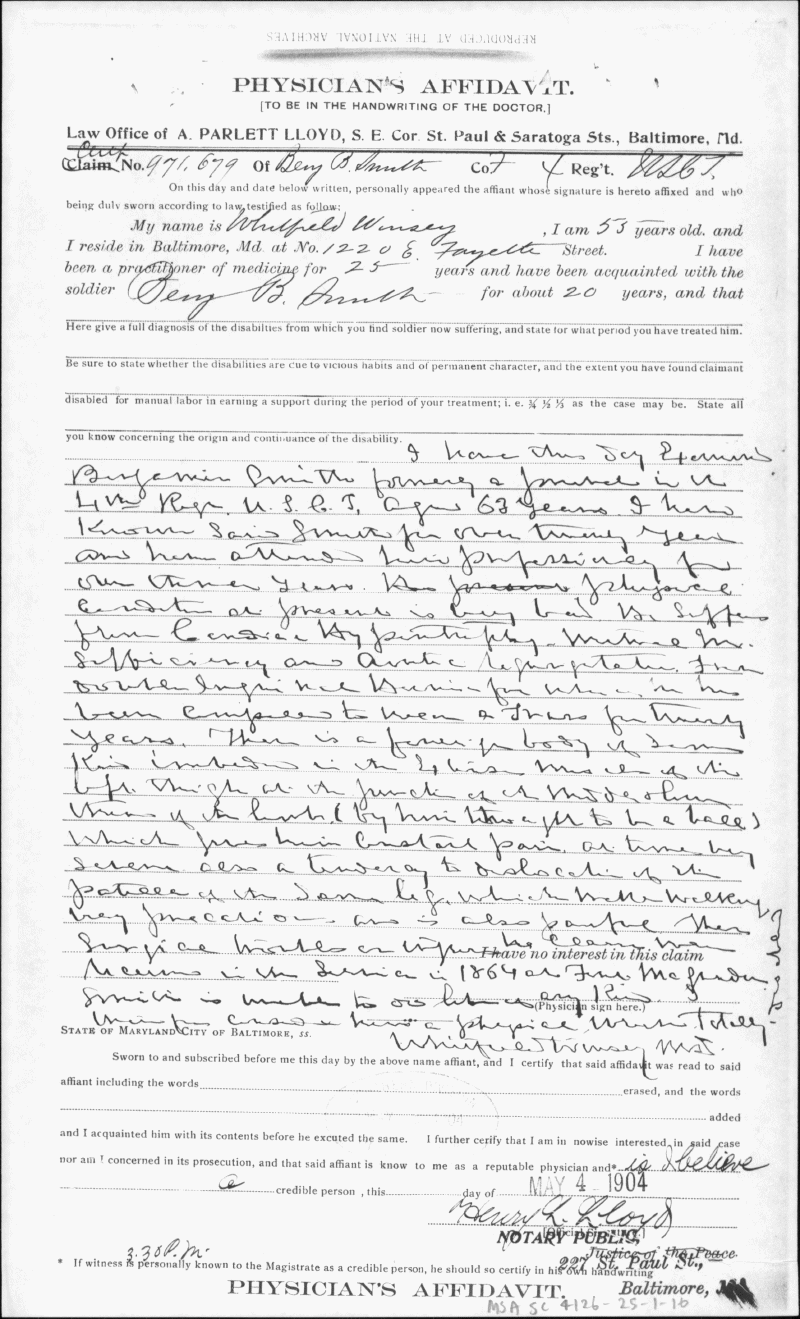 REPRODUCED AT THE NATIONAL ARCHIVES
PHYSICIAN'S AFFIDAVIT.
[TO BE IN THE HANDWRITING OF THE DOCTOR.]
Law Office of A. PARLETT LLOYD, S. E. Cor. St. Paul & Saratoga Sts., Baltimore, Md.
Ctff
Claim No. 971,679 Of Benj B. Smith Co F 4 Reg't. USCT.
On this day and date below written, personally appeared the affiant whose signature is hereto affixed and who
being duly sworn according to law testified as follow:
My name is Whitfield Winsey, I am 53 years old. and
I reside in Baltimore, Md. at No. 1220 E. Fayette Street. I have
been a practitioner of medicine for 25 years and have been acquainted with the
soldier Benj B. Smith for about 20 years, and that
Here give a full diagnosis of the disabilties from which you find soldier now suffering, and state for what period you have treated him.
Be sure to state whether the disabilities are due to vicious habits and of permanent character, and the extent you have found claimant
disabled for manual labor in earning a support during the period of your treatment; i. e. ¾ ½ ⅓ as the case may be. State all
you know concerning the origin and continuance of the disability.
I have this day Examined
Benjamin Smith formerly a private in the
4th Regt. U.S.C.T, aged 63 years. I have
Known Said Smith for over twenty years
and have attended him professionally for
over years. His physical
Condition at present is very bad He Suffers
from Cardiac Hypertrophy - Mitral In-
sufficiency and Aortic regurgitation. From
double Inguinal Hernia for which he has
been Compelled to wear a Truss for twenty
years. There is a foreign body of some
Kind imbedded in the muscle of the
left thigh at the junction of the Middle &
thirds of the limb (by him thought to be a ball)
Which gives him Constant pain at times very
severe also a tendency to dislocation of the
patella of the same leg, which makes walking
very precarious and is also painful. These
Surgical troubles or injuries he claims were
I have no interest in this claim
received in the Service in 1864 at
Smith is unable to do labor of any Kind. I
(Physician sign here.)
therefore consider him a physical wreck Totally
STATE OF MARYLAND CITY OF BALTIMORE, ss.
Whitfield Winsey M.D.
Sworn to and subscribed before me this day by the above name affiant, and I certify that said affidavit was read to said
affiant including the words erased, and the words
added
and I acquainted him with its contents before he excuted the same. I further cerify that I am in nowise interested in said case
nor am I concerned in its prosecution, and that said affiant is know to me as a reputable physician and* is I believe
a credible person, this day of MAY 4 1904
Henry L. Lloyd
[Official Signature.]
NOTARY PUBLIC,
Justice of the Peace.
3.30 P.M. 227 St. Paul St.,
* If witness is personally known to the Magistrate as a credible person, he should so certify in his own handwriting
PHYSICIAN'S AFFIDAVIT. Baltimore, Md
MSA SC 4126-25-1-16